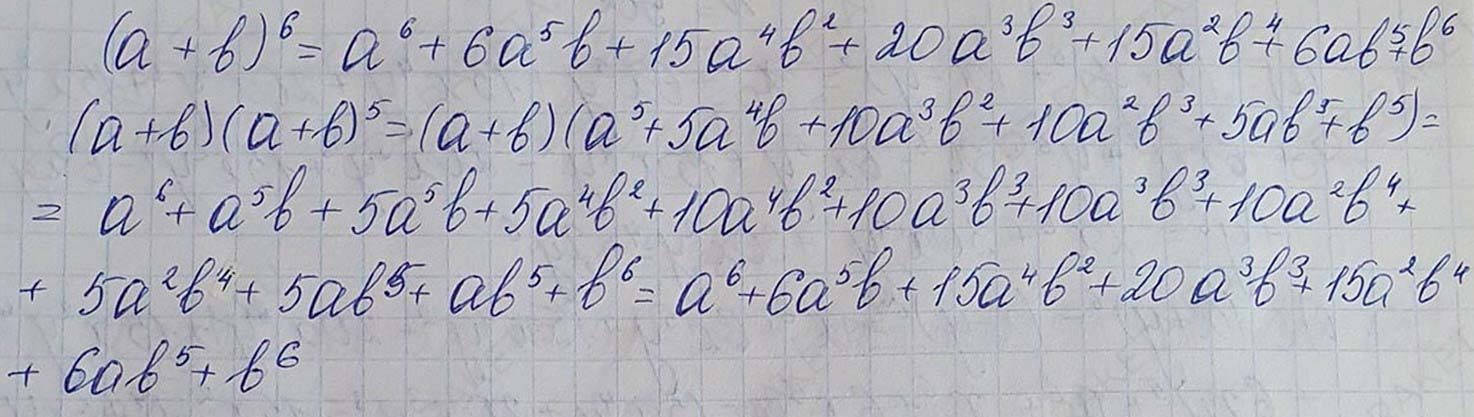 (a + b)⁶ = a⁶ + 6a⁵b + 15a⁴b² + 20a³b³ + 15a²b⁴ + 6ab⁵ + b⁶
(a + b)(a + b)⁵ = (a + b)(a⁵ + 5a⁴b + 10a³b² + 10a²b³ + 5ab⁵ + b⁵) =
= a⁶ + a⁵b + 5a⁵b + 5a⁴b² + 10a⁴b² + 10a³b³ + 10a³b³ + 10a²b⁴ +
+ 5a²b⁴ + 5ab⁵ + ab⁵ + b⁶ = a⁶ + 6a⁵b + 15a⁴b² + 20a³b³ + 15a²b⁴
+ 6ab⁵ + b⁶